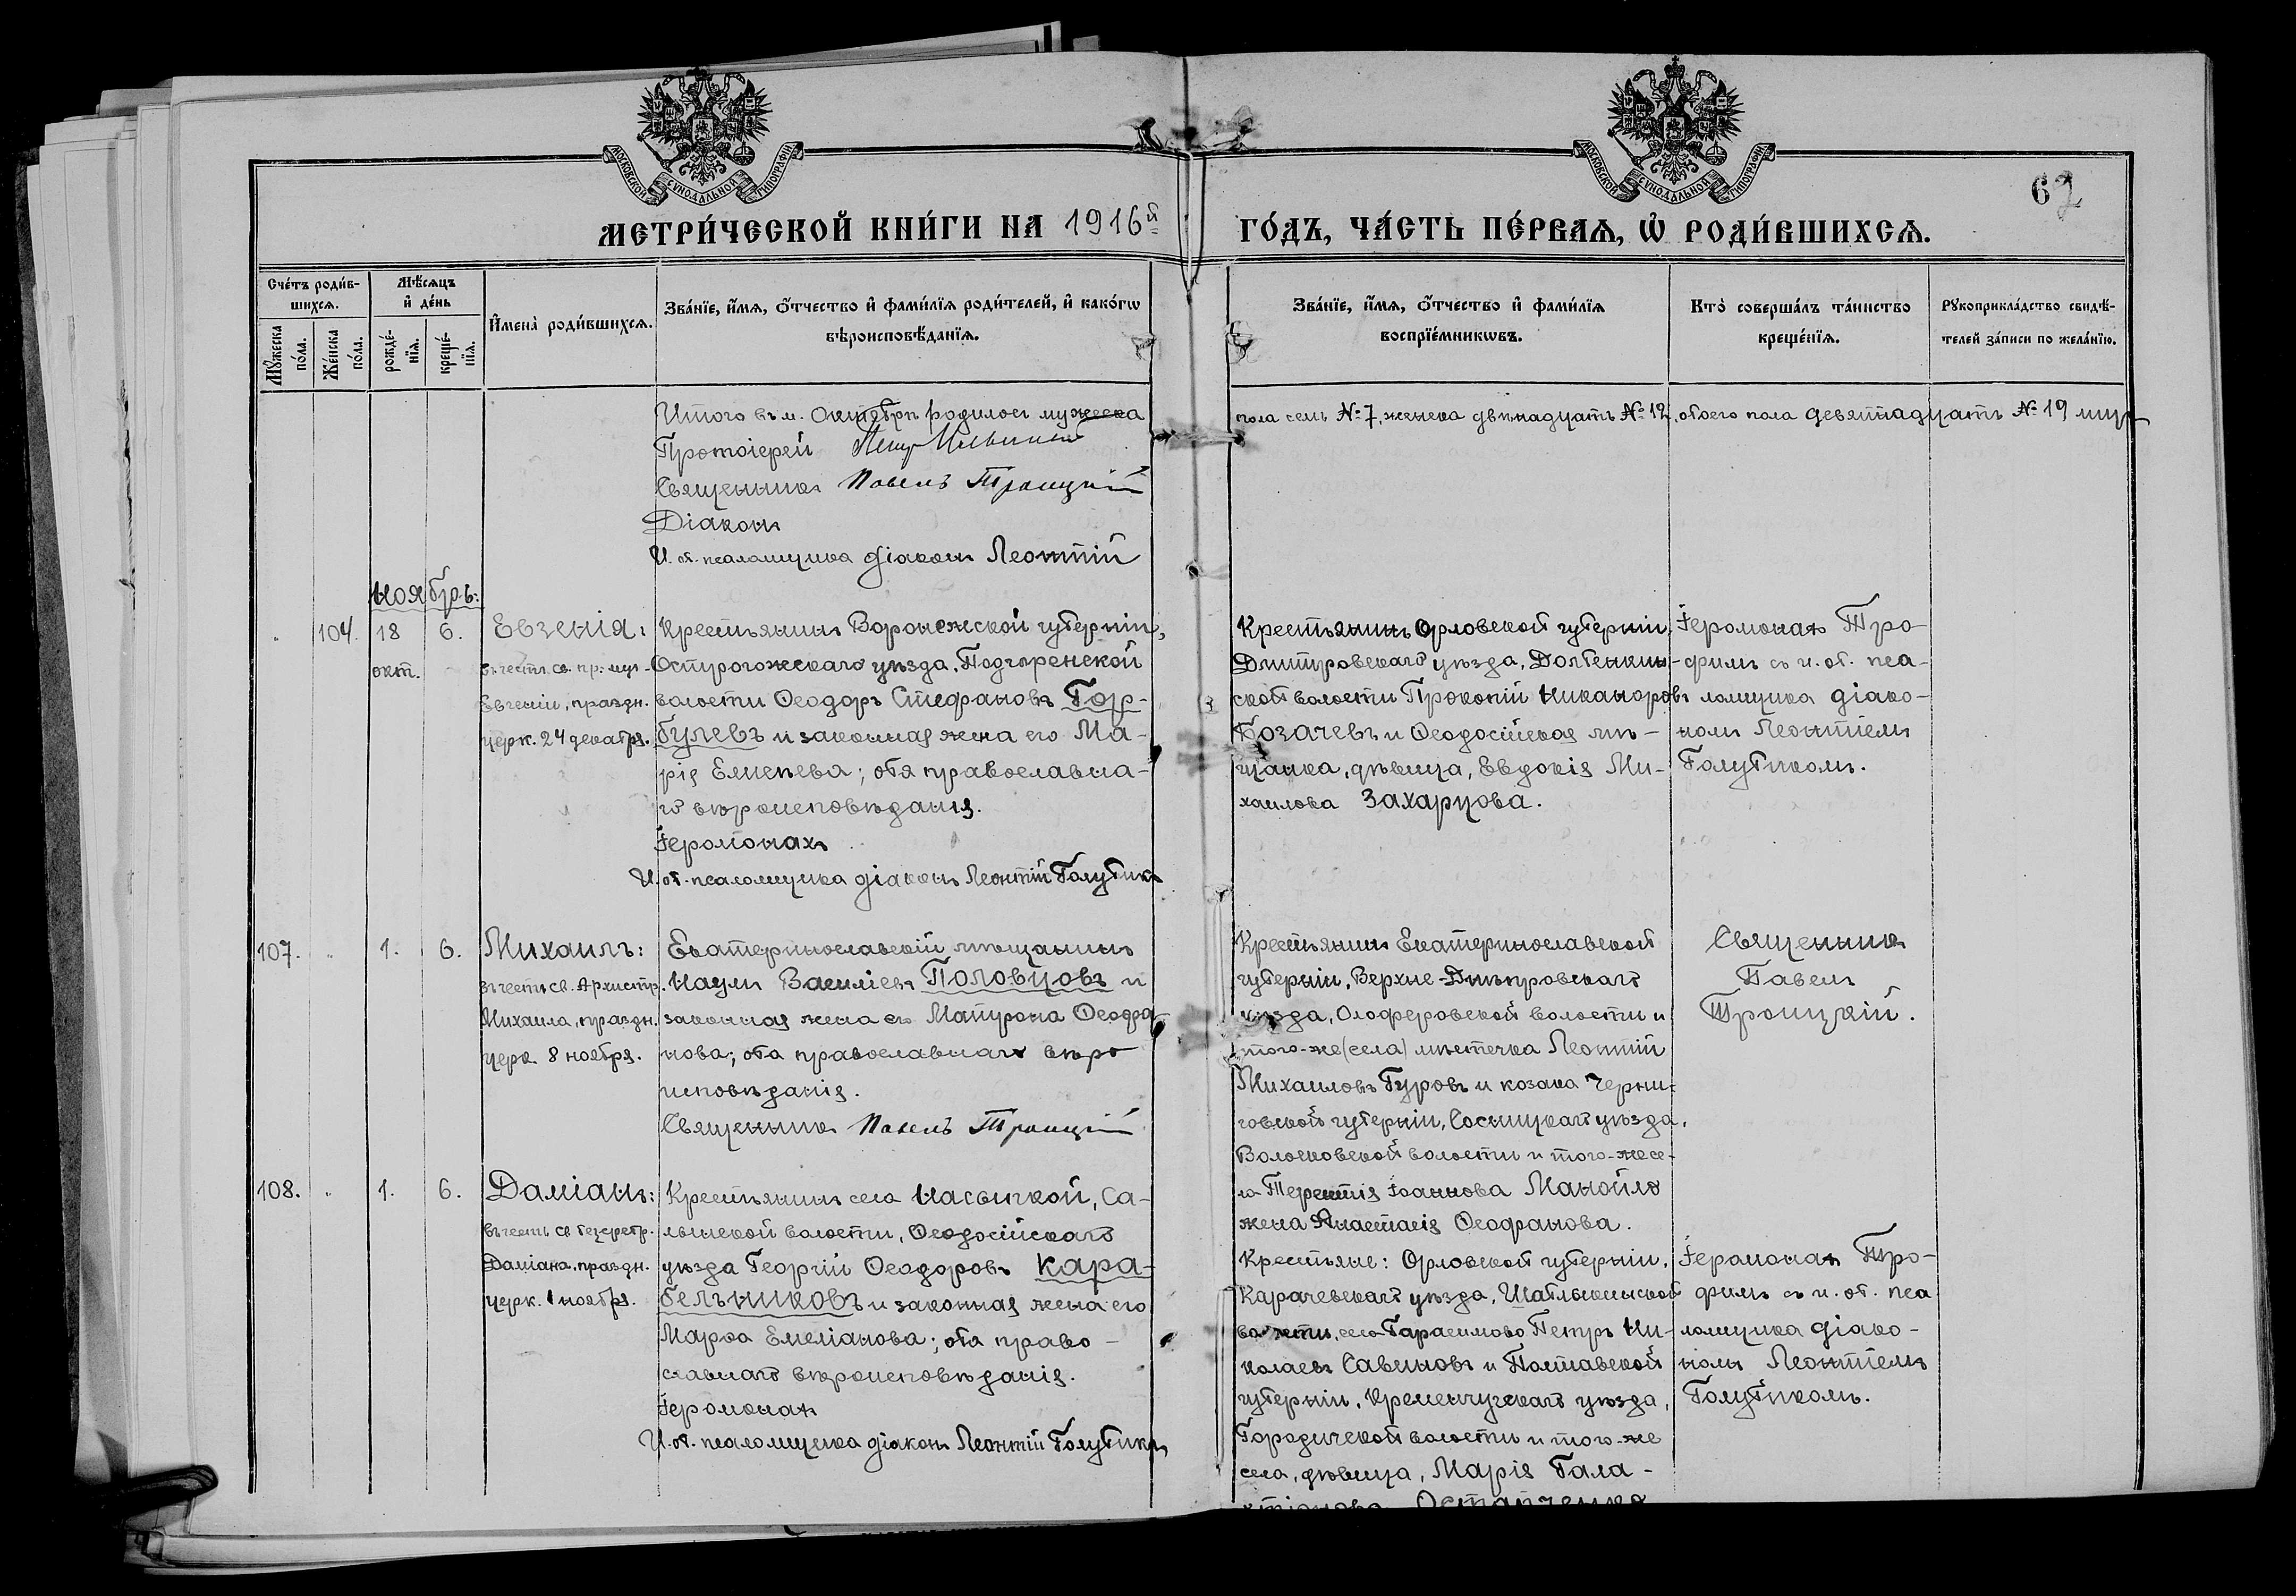 МОСКОВСКОЙ СѴНОДАЛЬНОЙ ТИПОГРАФІИ
МОСКОВСКОЙ СѴНОДАЛЬНОЙ ТИПОГРАФІИ
62
МЕТРИ́ЧЕСКОЙ КНИ́ГИ НА 1916й
ГО́ДЪ, ЧА́СТЬ ПЕ́РВАѦ, Ѡ҆ РОДИ́ВШИХСѦ.
Сче́тъ роди́в-
шихсѧ.
Мѣ́сѧцъ
и҆ де́нь
И҆мена̀ роди́вшихсѧ.
Зва́нїе, и҆́мѧ, ѻ҆́тчество и҆ фами́лїѧ роди́телей, и҆ како́гѡ
вѣроисповѣ́данїѧ.
Мꙋ́жеска
по́ла.
Же́нска
по́ла.
рожде́-
нїѧ.
креще́-
нїѧ.
Зва́нїе, и҆́мѧ, ѻ҆́тчество и҆ фами́лїѧ
воспрїе́мникѡвъ.
Кто̀ соверша́лъ та́инство
креще́нїѧ.
Рꙋкоприкла́дство свидѣ́-
телей за́писи по жела́нїю.
Итого въ м. Октябрѣ родилось мужеска
пола семь № 7, женска двѣнадцать № 12, обоего пола девятнадцать № 19 душ
Протоіерей
Священникъ Павелъ Троицкій
Діаконъ
И. об. псаломщика діаконъ Леонтій
Ноябрь:
104. 18 6. Евгенія:
окт.
въ честь св. пр. муч.
Евгеніи, праздн.
церк. 24 декабря.
Крестьянинъ Воронежской губерніи,
Острогожскаго уѣзда, Подгоренской
волости Ѳеодоръ Стефановъ Гор-
булевъ и законная жена его Ма-
рія Елисеева; оба православна-
го вѣроисповѣданія.
Іеромонахъ
И. об. псаломщика діаконъ Леонтій Голубикъ
Крестьянинъ Орловской губерніи,
Дмитровскаго уѣзда, Долбенкин-
ской волости Прокопій Никаноровъ
Козачевъ и Ѳеодосійская мѣ-
щанка, дѣвица, Евдокія Ми-
хаилова Захарцова.
Іеромонахъ Тро-
фимъ съ и. об. пса-
ломщика діако-
номъ Леонтіемъ
Голубикомъ.
107. 1. 6. Михаилъ:
въ честь св. Архистр.
Михаила, праздн.
церк. 8 ноября.
Екатеринославскій мѣщанинъ
Наумъ Василіевъ Половцовъ и
законная жена его Матрона Ѳеофа-
нова; оба православнаго вѣро
исповѣданія.
Священникъ Павелъ Троицкій
Крестьянинъ Екатеринославской
губерніи, Верхне-Днѣпровскаго
уѣзда, Олоферовской волости и
того-же (села) мѣстечка Леонтій
Михаиловъ Гуровъ и козака Черни-
говской губерніи, Сосницкаго уѣзда,
Волосковской волости и того-же се-
ла Терентія Іоаннова Манойло
жена Анастасія Ѳеофанова.
Священникъ
Павелъ
Троицкій.
108. 1. 6. Даміанъ:
въ честь св. безсребр.
Даміана, праздн.
церк. 1 ноября.
Крестьянинъ села Насыпкой, Са-
лынской волости, Ѳеодосійскаго
уѣзда Георгій Ѳеодоровъ Кара-
бельниковъ и законная жена его
Марѳа Емеліанова; оба право-
славнаго вѣроисповѣданія.
Іеромонахъ
И. об. псаломщика діаконъ Леонтій Голубикъ
Крестьяне: Орловской губерніи,
Карачевскаго уѣзда, Шаблыкинской
волости, села Гарасимово Петръ Ни-
колаевъ Савиновъ и Полтавской
губерніи, Кременчугскаго уѣзда,
Городичской волости и того-же
села, дѣвица, Марія Гала-
ктіонова Остапченко
Іеромонахъ Тро-
фимъ съ и. об. пса
ломщика діако-
номъ Леонтіемъ
Голубикомъ.